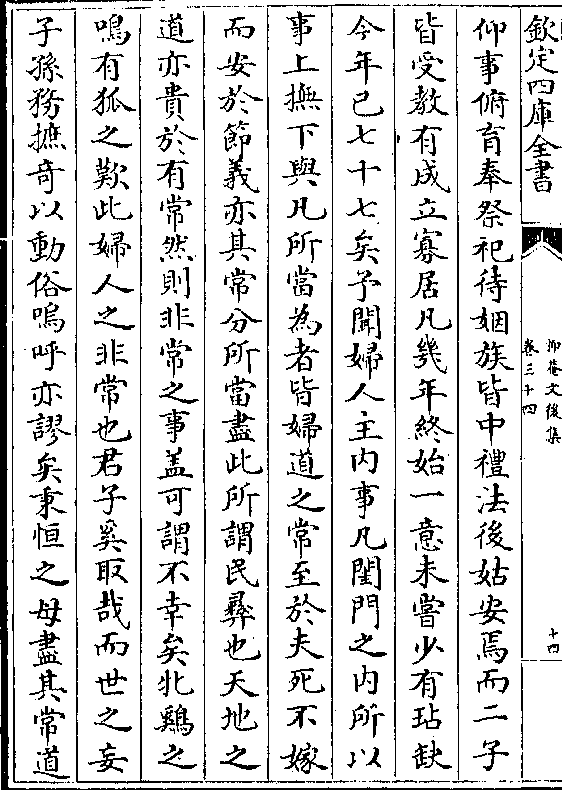 欽定四庫全書
抑菴文後集
卷三十四
十四
仰事俯育奉祭祀待姻族皆中禮法後姑安焉而二子
皆受教有成立寡居凡幾年終始一意未嘗少有玷缺
今年已七十七矣予聞婦人主内事凡閨門之内所以
事上撫下與凡所當為者皆婦道之常至於夫死不嫁
而安於節義亦其常分所當盡此所謂民彞也天地之
道亦貴於有常然則非常之事盖可謂不幸矣牝鷄之
鳴有狐之歎此婦人之非常也君子奚取哉而世之妄
子孫務摭竒以動俗嗚呼亦謬矣秉恒之母盡其常道